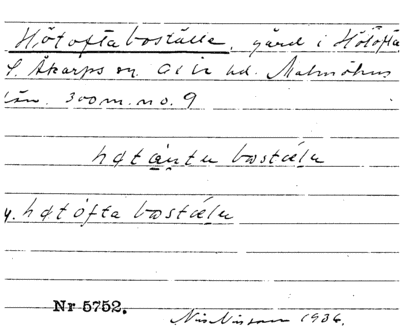 Hötofta boställe, gård i Hötofta
S. Åkarps sn. Oxie hd. Malmöhus
län. 300 m. no. 9
boställe
y. høtófta bostǽlu
Nr 5752.
Nils Nilsson 1936.